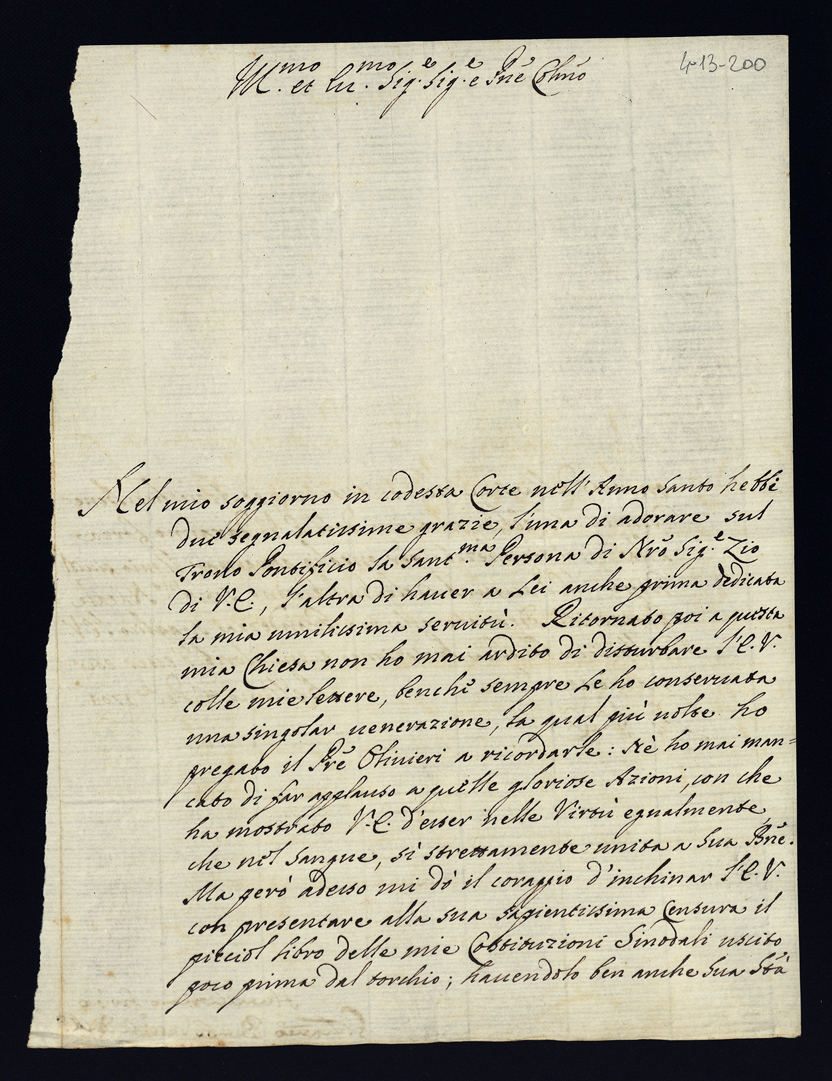 4-13-200
Ill.mo et Ecc.mo Sig.e Sig.e e Pñe Colmo
Nel mio soggiorno in codesta Corte nell'Anno Santo hebbi
due segnalatissime grazie, l'una di adorare sul
Trono Pontificio la Sant.ma Persona di Nrõ Sig.e Zio
di V.E., l'altra di hauer a Lei anche prima dedicata
la mia umilissima seruitù. Ritornato poi a questa
mia Chiesa non ho mai ardito di disturbare l'E.V.
colle mie lettere, benchè sempre Le ho conseruata
una singolar uenerazione, La qual più uolte ho
pregato il Prẽ Oliuieri a ricordarle: Nè ho mai man=
cato di far applauso a quelle gloriose Azioni, con che
ha mostrato V.E. d'esser nelle Virtù egualmente,
che nel Sangue, sì strettamente unita a Sua Bñe.
Ma però adesso mi dò il coraggio d'inchinar l'E.V.
con presentare alla sua sapientissima Censura il
picciol libro delle mie Costituzioni Sinodali uscito
poco prima dal torchio; hauendolo ben anche Sua Stà